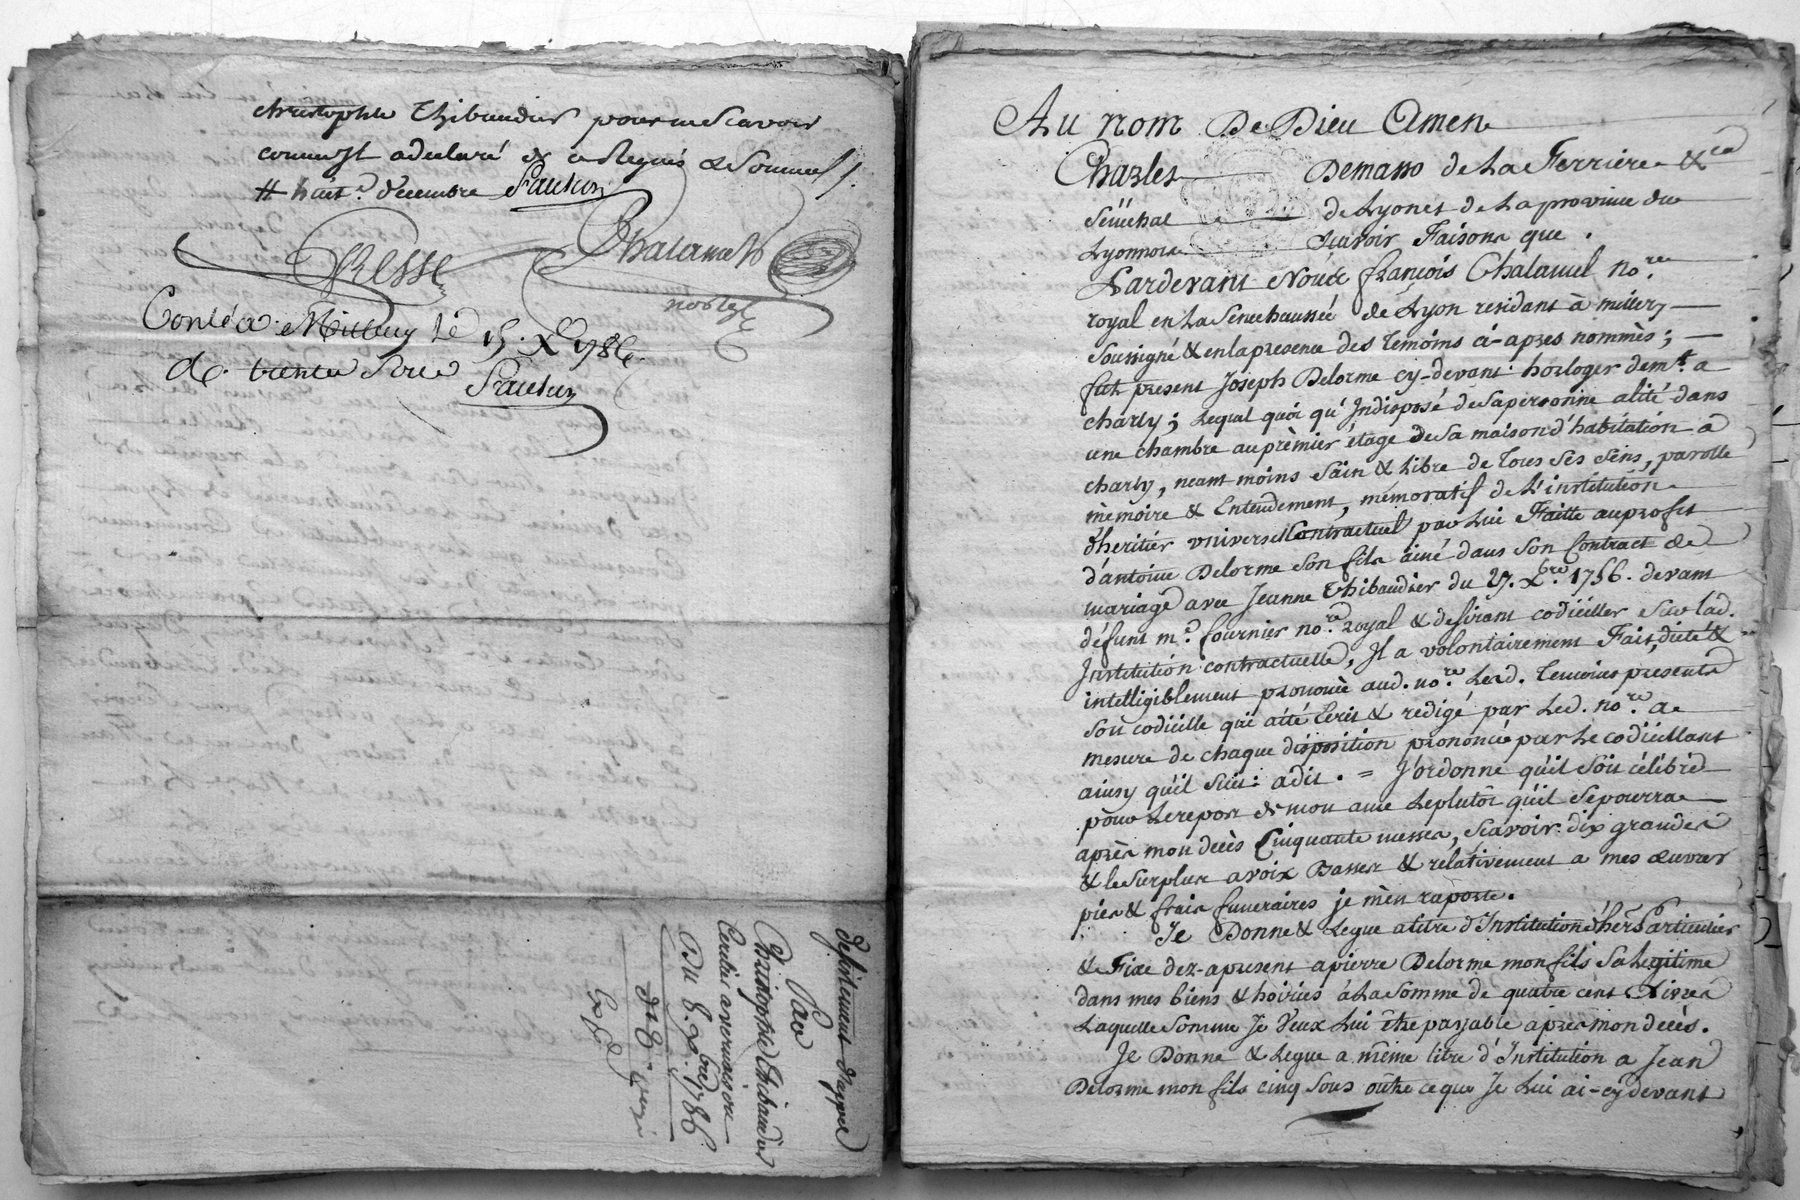 christophle Thibaudier pour ne Scavoir
comme Il a declaré de ce Requis & Sommé /.
# huit e. decembre Fauteur
Gresse Chalamel
no.re
Conlé a Millery le 15. X 1786.
R. trente Sous
Desistement d'appel
Par
Christophle Thibaudier
Du 8. xbre 1786
Au nom De Dieu Amen
Charles Demasso de La Ferriere &ca
Sénéchal de Lyon et de La province du
Lyonnois Scavoir Faisons que .
Pardevant Nous françois Chalamel no.re
royal en La Senechaussée de Lyon residant à millery
Soussigné & en la presence des Temoins ci-apres nommés ;
fut present Joseph Delorme cy-devant horloger dem.t a
charly ; Lequel quoi qu'Indisposé de Sa personne alité dans
une chambre au prèmier étage de Sa maison d'habitation a
charly, neant moins Sain & Libre de Tous Ses Sens, parolle
mèmoire & Entendement, mémoratif de L'institution
d'heritier universel Contractuel par Lui Faitte au profit
d'antoine Delorme Son fils ainé dans Son Contract de
mariage avec Jeanne Thibaudier du 27. x.bre 1756. devant
défunt m.e fournier no.re royal & desirant codiciller Sur Lad.
Institution contractuelle, Il a volontairement Fait, dicté &
intelligiblement prononcé aud. no.re Lesd. Temoins presents
Son codicille qui a été Ecrit & redigé par Led. no.re a
mesure de chaque disposition prononcée par Le codicillant
ainsy qu'il Suit : a dit . = J'ordonne qu'il Soit célébré
pour Le repos de mon ame Le plutôt qu'il Se pourra
après mon décès Cinquante messes, Scavoir dix grandes
& le Surplus a voix Basses & relativement a mes œuvres
pies & frais funeraires je m'en raporte.
Je Donne & Legue a titre d'Institution d'her. Particulier
& Fixe dez-apresent a pierre Delorme mon fils Sa Legitime
dans mes biens & hoiries à La Somme de quatre cent Livres
Laquelle Somme Je Veux Lui être payable apres mon décès.
Je Donne & Legue a même titre d'Institution a Jean
Delorme mon fils cinq Sous outre ce que Je Lui ai-cy devant